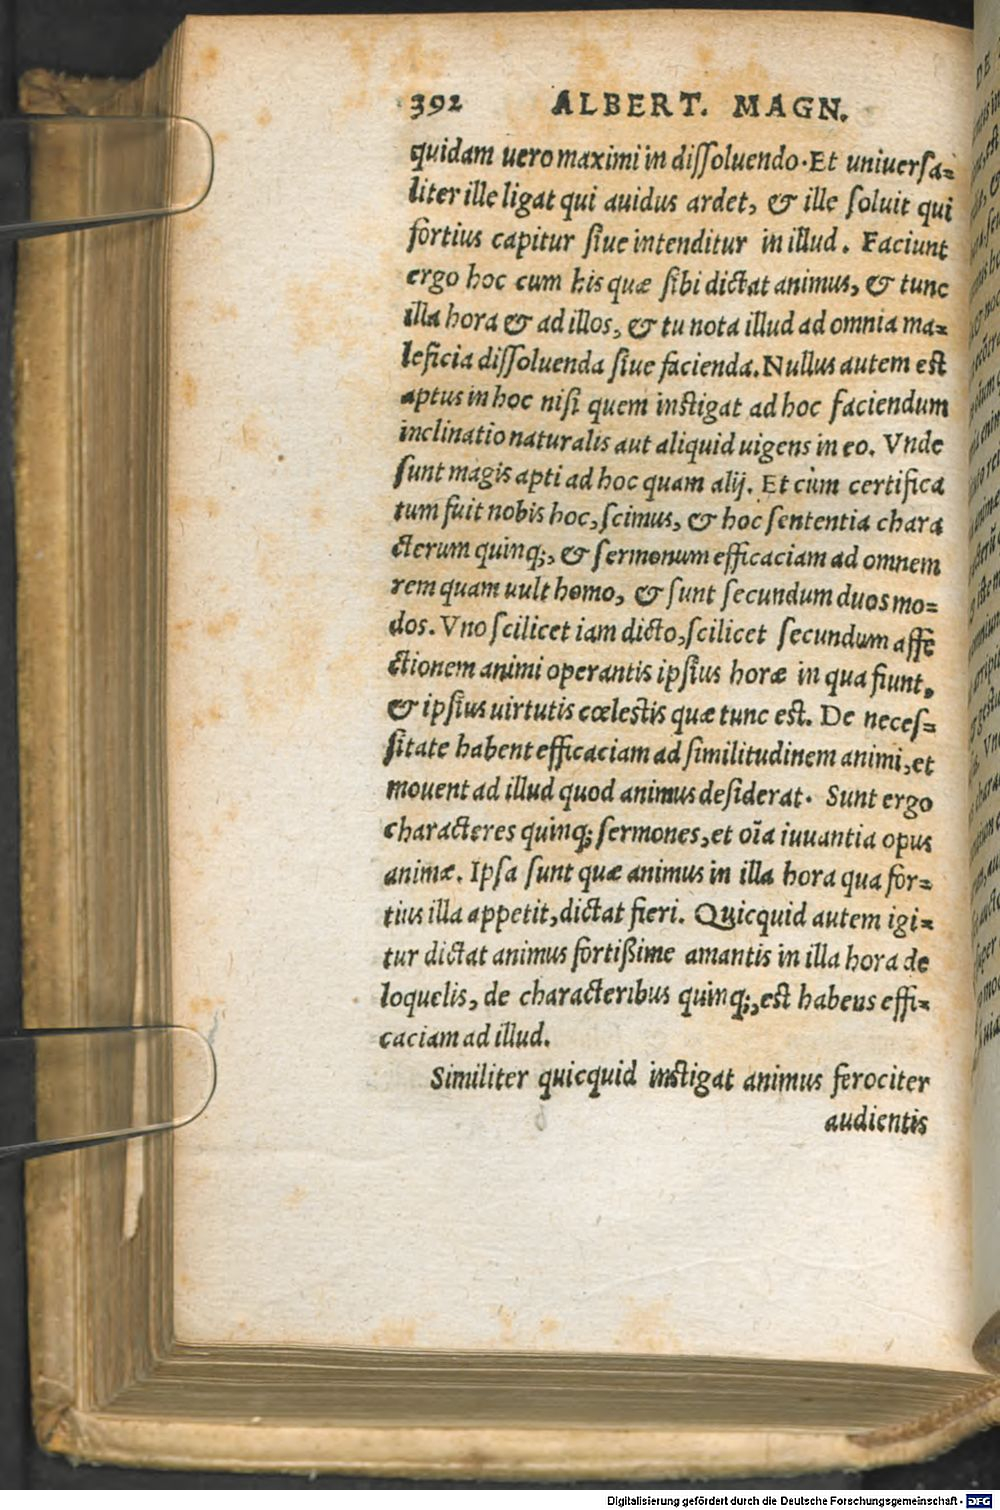 392 ALBERT. MAGN.
quidam uero maximi in diſſoluendo. Et uniuerſa-
liter ille ligat qui auidus ardet, & ille ſoluit qui
fortius capitur ſiue intenditur in illud. Faciunt
ergo hoc cum his quæ ſibi dictat animus, & tunc
illa hora & ad illos, & tu nota illud ad omnia ma-
leficia diſſoluenda ſiue facienda. Nullus autem eſt
aptus in hoc niſi quem inſtigat ad hoc faciendum
inclinatio naturalis aut aliquid uigens in eo. Vnde
ſunt magis apti ad hoc quam alij. Et cùm certifica
tum fuit nobis hoc, ſcimus, & hoc ſententia chara
cterum quinq;, & ſermonum efficaciam ad omnem
rem quam uult homo, & ſunt ſecundum duos mo-
dos. Vno ſcilicet iam dicto, ſcilicet ſecundum affe
ctionem animi operantis ipſius horæ in qua fiunt,
& ipſius uirtutis cœleſtis quæ tunc eſt. De neceſ-
ſitate habent efficaciam ad ſimilitudinem animi, et
mouent ad illud quod animus deſiderat. Sunt ergo
characteres quinq; ſermones, et oĩa iuuantia opus
animæ. Ipſa ſunt quæ animus in illa hora qua for-
tius illa appetit, dictat fieri. Quicquid autem igi-
tur dictat animus fortißime amantis in illa hora de
loquelis, de characteribus quinq;, eſt habens effi-
caciam ad illud.
Similiter quicquid inſtigat animus ferociter
audientis
DE
Digitalisierung gefördert durch die Deutsche Forschungsgemeinschaft - DFG